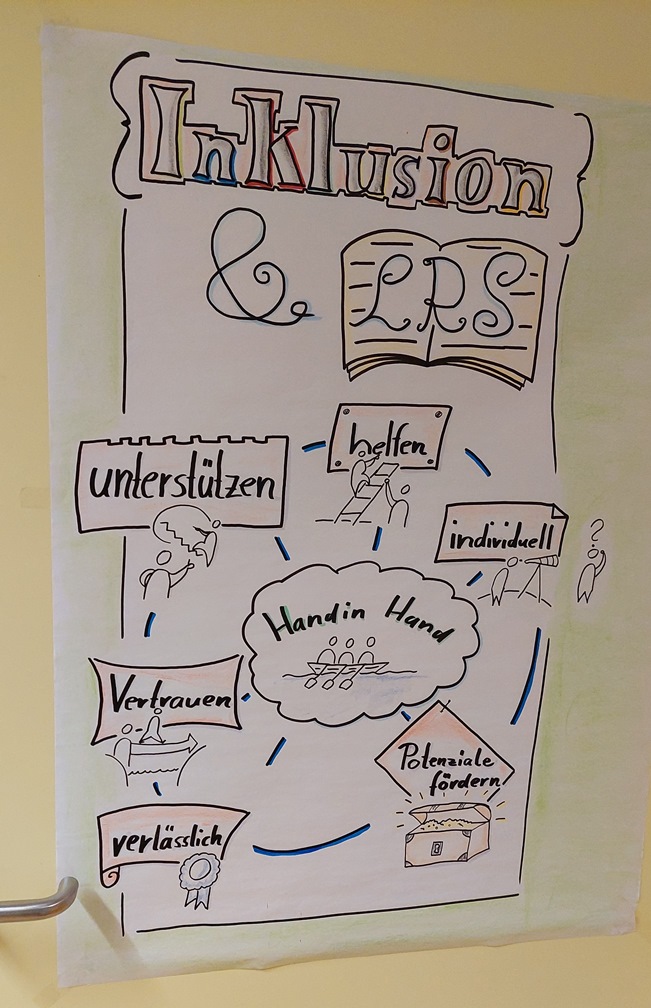 Inklusion
& LRS
helfen
unterstützen
individuell
?
Hand in Hand
Vertrauen
Potenziale
fördern
verlässlich